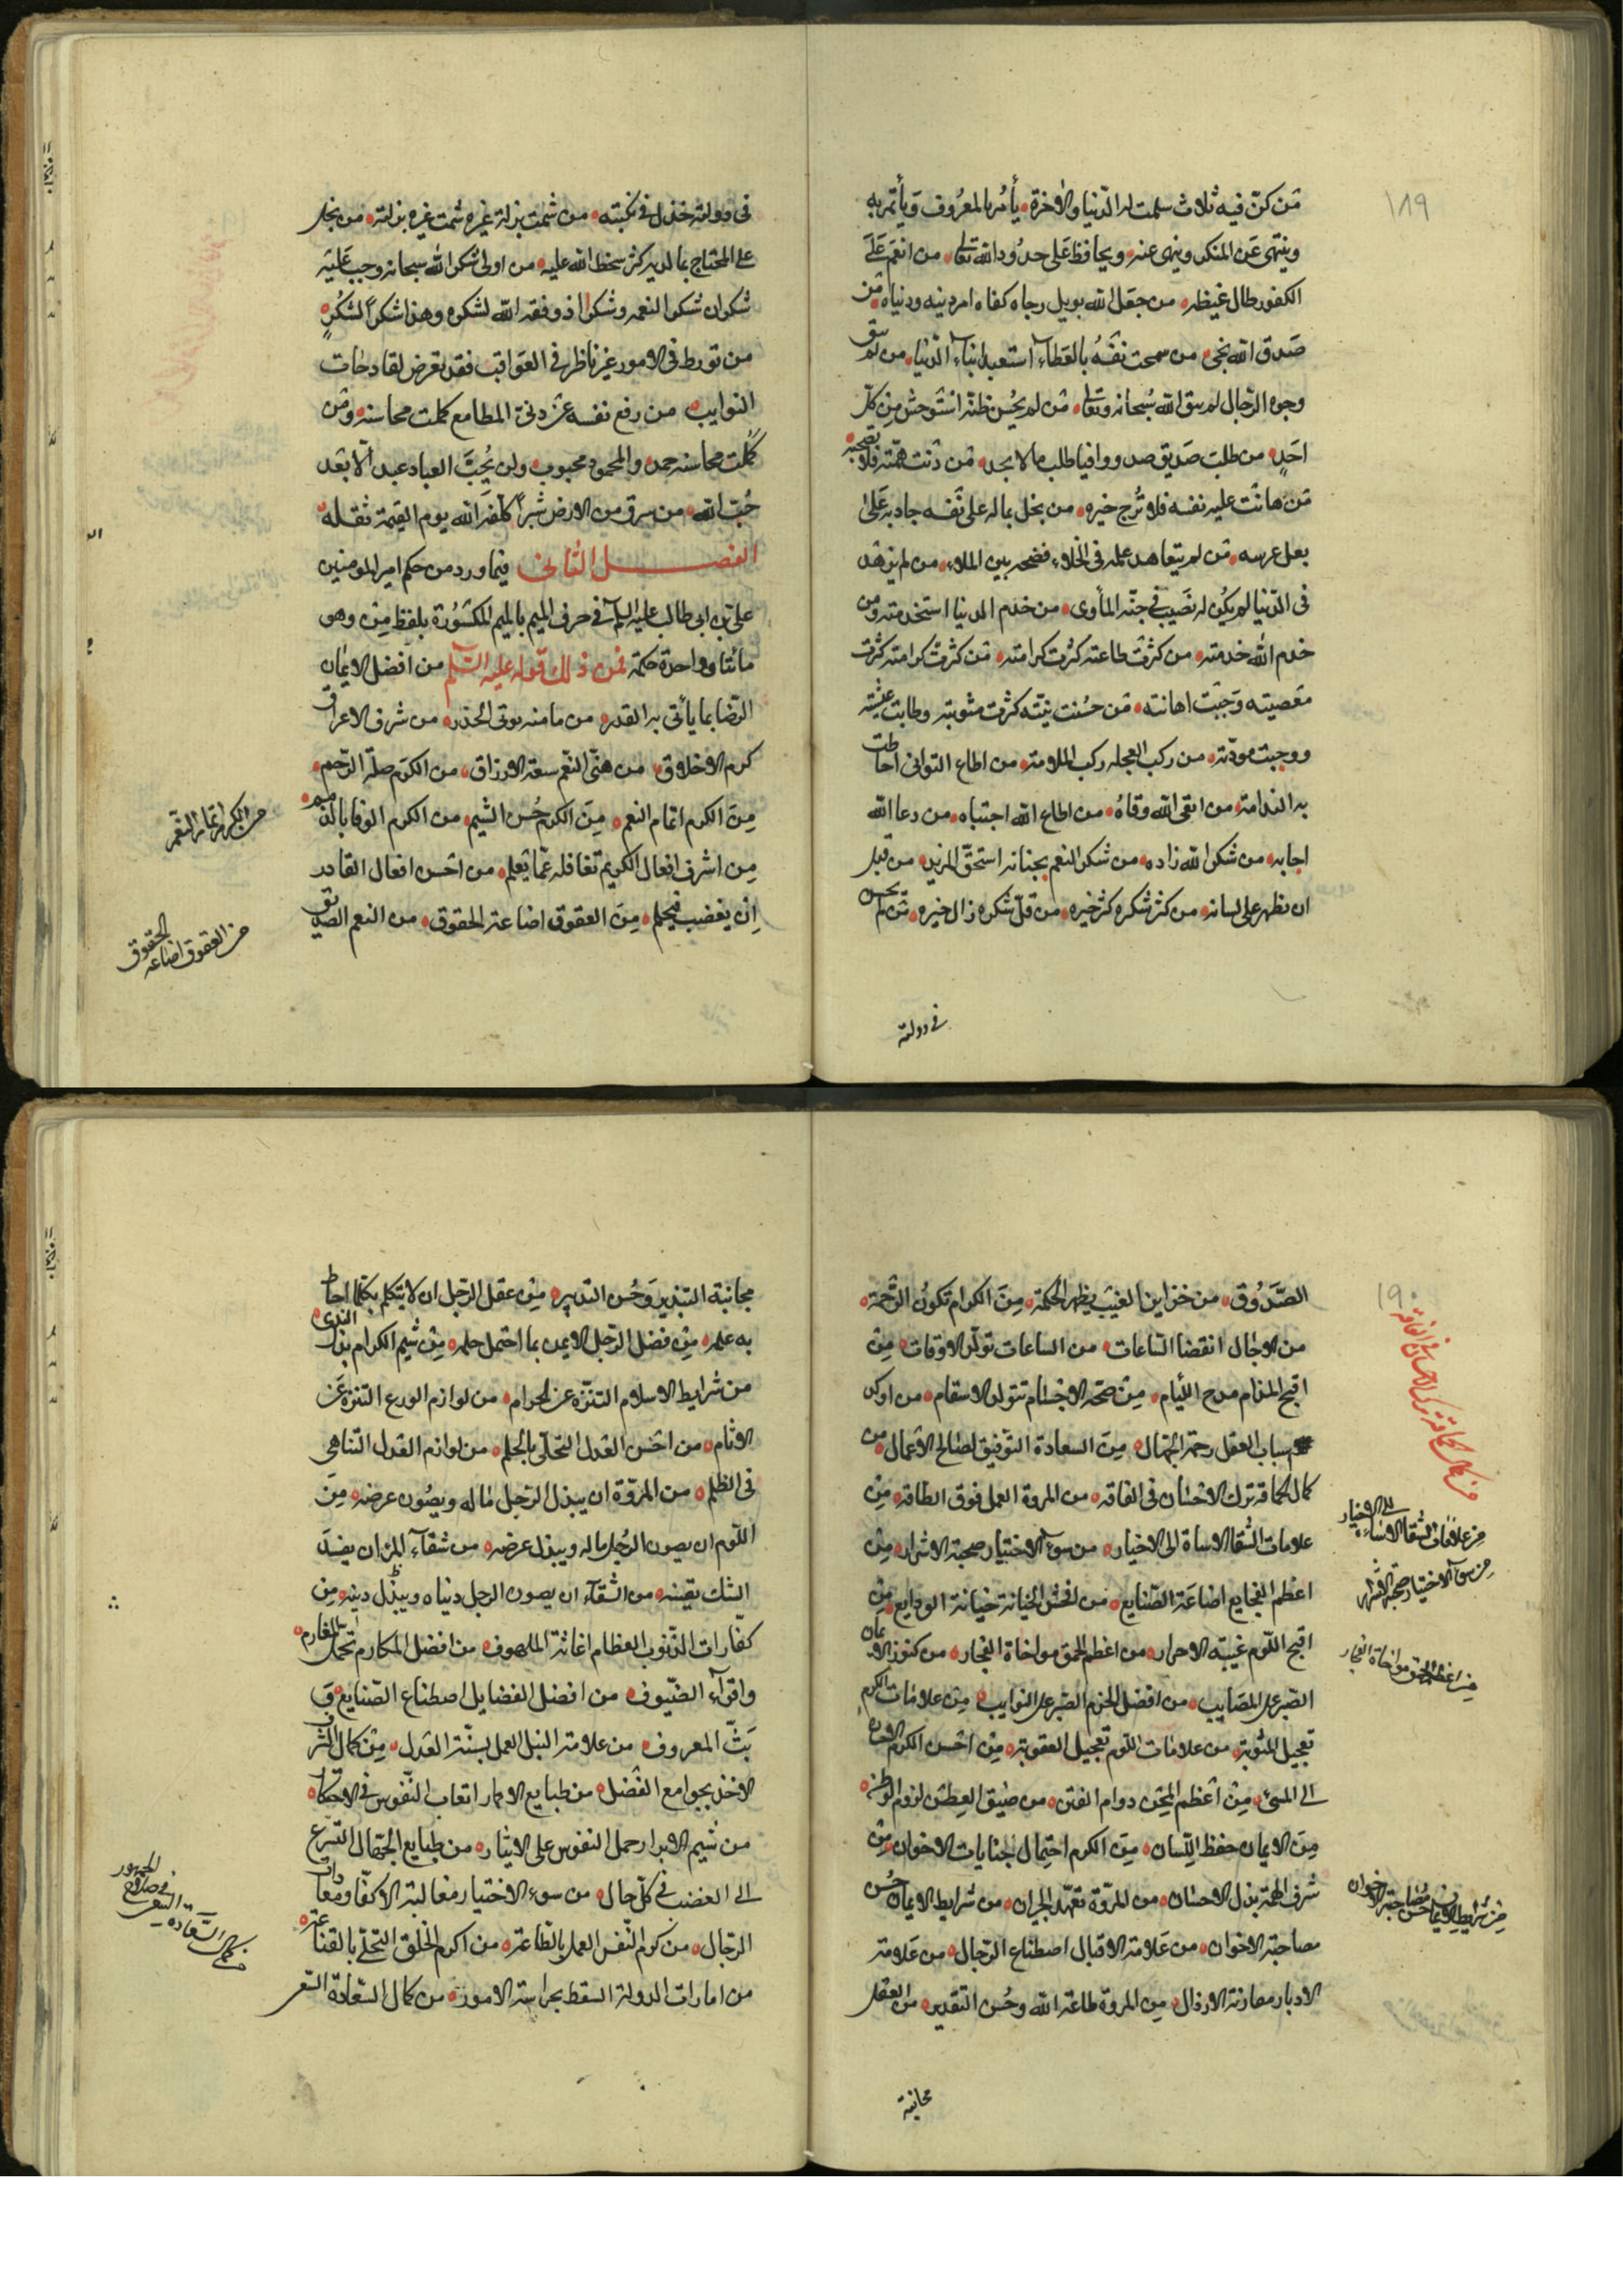 ١٨٩
مَن كنّ فيه ثلاث سلمت له الدّنيا والاخرة يأمر بالمعروف ويأتمر به
وينهى عَن المنكر وينهى عنه ويحافظ على حدُود الله تعالى من انعم عَلَى
الكفور طال غيظه من جعل الله رجاه كفاه امر دينه ودنياه من
صَدق الله نجى من سمحت نفسُه بالعَطاء استعبد ابناء الدّنيا من لم يتق
وجوه الرّجال لم يتق الله سُبحانه وتعالى مَن لم يحُسن ظنّه استوحش مِن كلّ
احَدٍ من طلب صَديق صدق وافيا طلب ما لا يجد مَن دَنت همّته فلا تصحبه
مَن هانت عليه نفسه فلا تُرج خيره من بخل بماله على نَفسه جاد به عَلى
بعل عرسه مَن لم يتعاهد عمله فى الخلاء فضحه بين الملاء من لم يزهد
فى الدّنيا لم يكُن له نصَيب فى جنّه المأوى من خدم الدنيا استخدمته ومن
خدم الله خدمته من كثرت طاعته كثرت كرامته مَن كثرت كرامته كثرت
معَصيته وَجبَت اهانته مَن حسُنت نيّته كثرت مثوبته وطابت عيشته
ووجبت مودّته من ركب العجله ركب الملامة من اطاع التوانى احاطت
به الندامة من اتقى الله وقاهُ من اطاع الله اجتباه من دعا الله
اجابه من شكر الله زاده من شكر النعم بجنانه استحقّ المزيد من قبل
ان يظهر على لسانه من كثر شكره كثر خيره من قلّ شكره زال خيره مَن لم يحسن
فى دولته
فى دولته خذل فى نكبته من شمت بزلة غيره شمت غيره بزلته من بخل
على المحتاج بما لديه كثر سخط الله عليه من اولى شكر الله سبحانه وجب عَليه
شُكران شكر النعمه وشكر اذ وفقه الله لشكره وهذا شكر الشكُر
من تورط فى الامور غير ناظر فى العَواقب فقد تعرض لفادحات
النوايب من رفع نفسه عَن دنىّ المطامع كملت محاسنه ومَن
كملت محاسنه حمد والمحمود محبوب ولن يُحِبَّ العباد عبد الّا بعَد
حُبّ الله من سرق من الارض شبرًا كلّفهَ الله يوم القيمة نقله
الفصل الثانى فيما ورد من حكم امير المومنين
على بن ابى طالب عليه السلم فى حرف الميم بالميم المكسُورة بلفظ مِن وهو
مائتا وواحدة حكمة فمن ذلك قوله عليه السّلم من افضل الايمان
الرّضا بما يأتى به القدر من مامنه يوتى الحذر من شرف الاعراق
كرم الاخلاق من هنىّ النعّم سعة الارزاق من الكرَم صلة الرّحم
مِنَ الكرم اتمام النعم مِنَ الكرم حُسن الشيم من الكرم الوفا بالذمم
مِن اشرف افعال الكريم تغافله عمّا يَعلم من احسن افعال القادر
اِن يغضب فيحلم مِنَ العقوق اضاعة الحقوق من النعم الصديق
من الكرم اتمام النعّم
من العقوق اضاعة الحقوق
١٩٠
الصَّدُوق من خزاين الغيب يظهر الحكمة مِنَ الكرام تكونُ الرّحمة
من الاجال انقضا السّاعات من الساعات تولّد الاوقات مِن
اقبح المذام مدح اللّيام مِن صحّة الاجسام تتولد الاسقام من اوكد
اسباب العقل رحمة الجهّال مِنَ السعادة التوفيق لصالح الاعَمال من
كمال الحماقة ترك الاحسان فى الفاقه من المروة العمل فوق الطاقة مِن
علامات الشقا الاساة الى الاخيار من سوء الاختيار صحبة الاشرار مِن
اعظم الفجايع اضاعَة الصّنايع من افحش الخيانة خيانة الودايع مِن
اقبح اللّوم غيبة الاحرار من اعظم الحمق مواخاة الفجار من كنوز الايمان
الصّبر على المصَايب من افضل الحزم الصّبر على النوايب مِن علامات الكرم
تعجيل المثوبة من علامات اللّوم تعجيل العقوبة مِن احَسن الكرم الاحسان
الى المسىٔ مِن اعَظم المِحَن دوام الفتن من ضيق العطن لزوم الوطن
مِنَ الايمان حفظ اللِّسان مِنَ الكرم احتمال جنايات الاخوان مِن
شرف الهمة بذل الاحسان من المروّة تعَهّد الجيران من شرايط الايمان حُسن
مصاحبة الاخوان من عَلامة الاقبال اصطناع الرّجال من عَلامة
الادبار مقارنة الارذال مِن المروة طاعة الله وحُسن التقدير من العقل
مجانبة
من كمال الحماقة ترك الاحسان فى الفاقة
من علامات الشقا الاساة الى الاخيار
من سوء الاختيار صحبة الاشرار
من اعظم الحمق مواخاة الفجار
من شرايط الايمان حسن مصاحبة الاخوان
مجانبة التبذير وَحُسن التدبير مِن عقل الرّجل ان لا يتكلم بكلما احاط
به علمه مِن فضل الرّجل الا يمن بما احتمل حلمه مِن شيم الكرام بذل الندى
من شرايط الاسلام التنزّه عن الحرام من لوازم الورع التنزه عَن
الاثام من احَسن العَدل التحلّى بالحِلم من لوازم العَدل التناهى
فى الظلم من المروّة ان يبذل الرّجل مَاله ويصُون عرضه مِنَ
اللّوم ان يصون الرّجل ماله ويبذل عرضه من شقاء المرٔ ان يفسدَ
الشك يقينه من الشقاء ان يصون الرجل دنياه ويبذل دينه مِن
كفّارات الذّنوب العظام اغاثة الملهوف من افضل المكارم تحمّل المغارم
واقراء الضّيوف من افضل الفضايل اصطناع الصّنايع وَ
بَثّ المعروف من علامة النبل العمل بسنّة العَدل مِن كمال الشرف
الاخذ بجوامع الفَضل من طبايع الاغمار اتعاب النّفوس فى الاحتكار
من شيم الابرار حمل النفوس على الايثار من طبايع الجهّال التسرّع
الى الغضب فى كلّ حال من سوء الاختيار مغالبة الاكفّا ومعادات
الرّجال من كرم النّفس العمل بالطّاعة من اكرم الخلق التحلّى بالقناعة
من امارات الدولة اليقظ بحراسة الامور من كمال السّعادة السّعى
من كمال السّعادة السّعى فى صلاح الجمهور